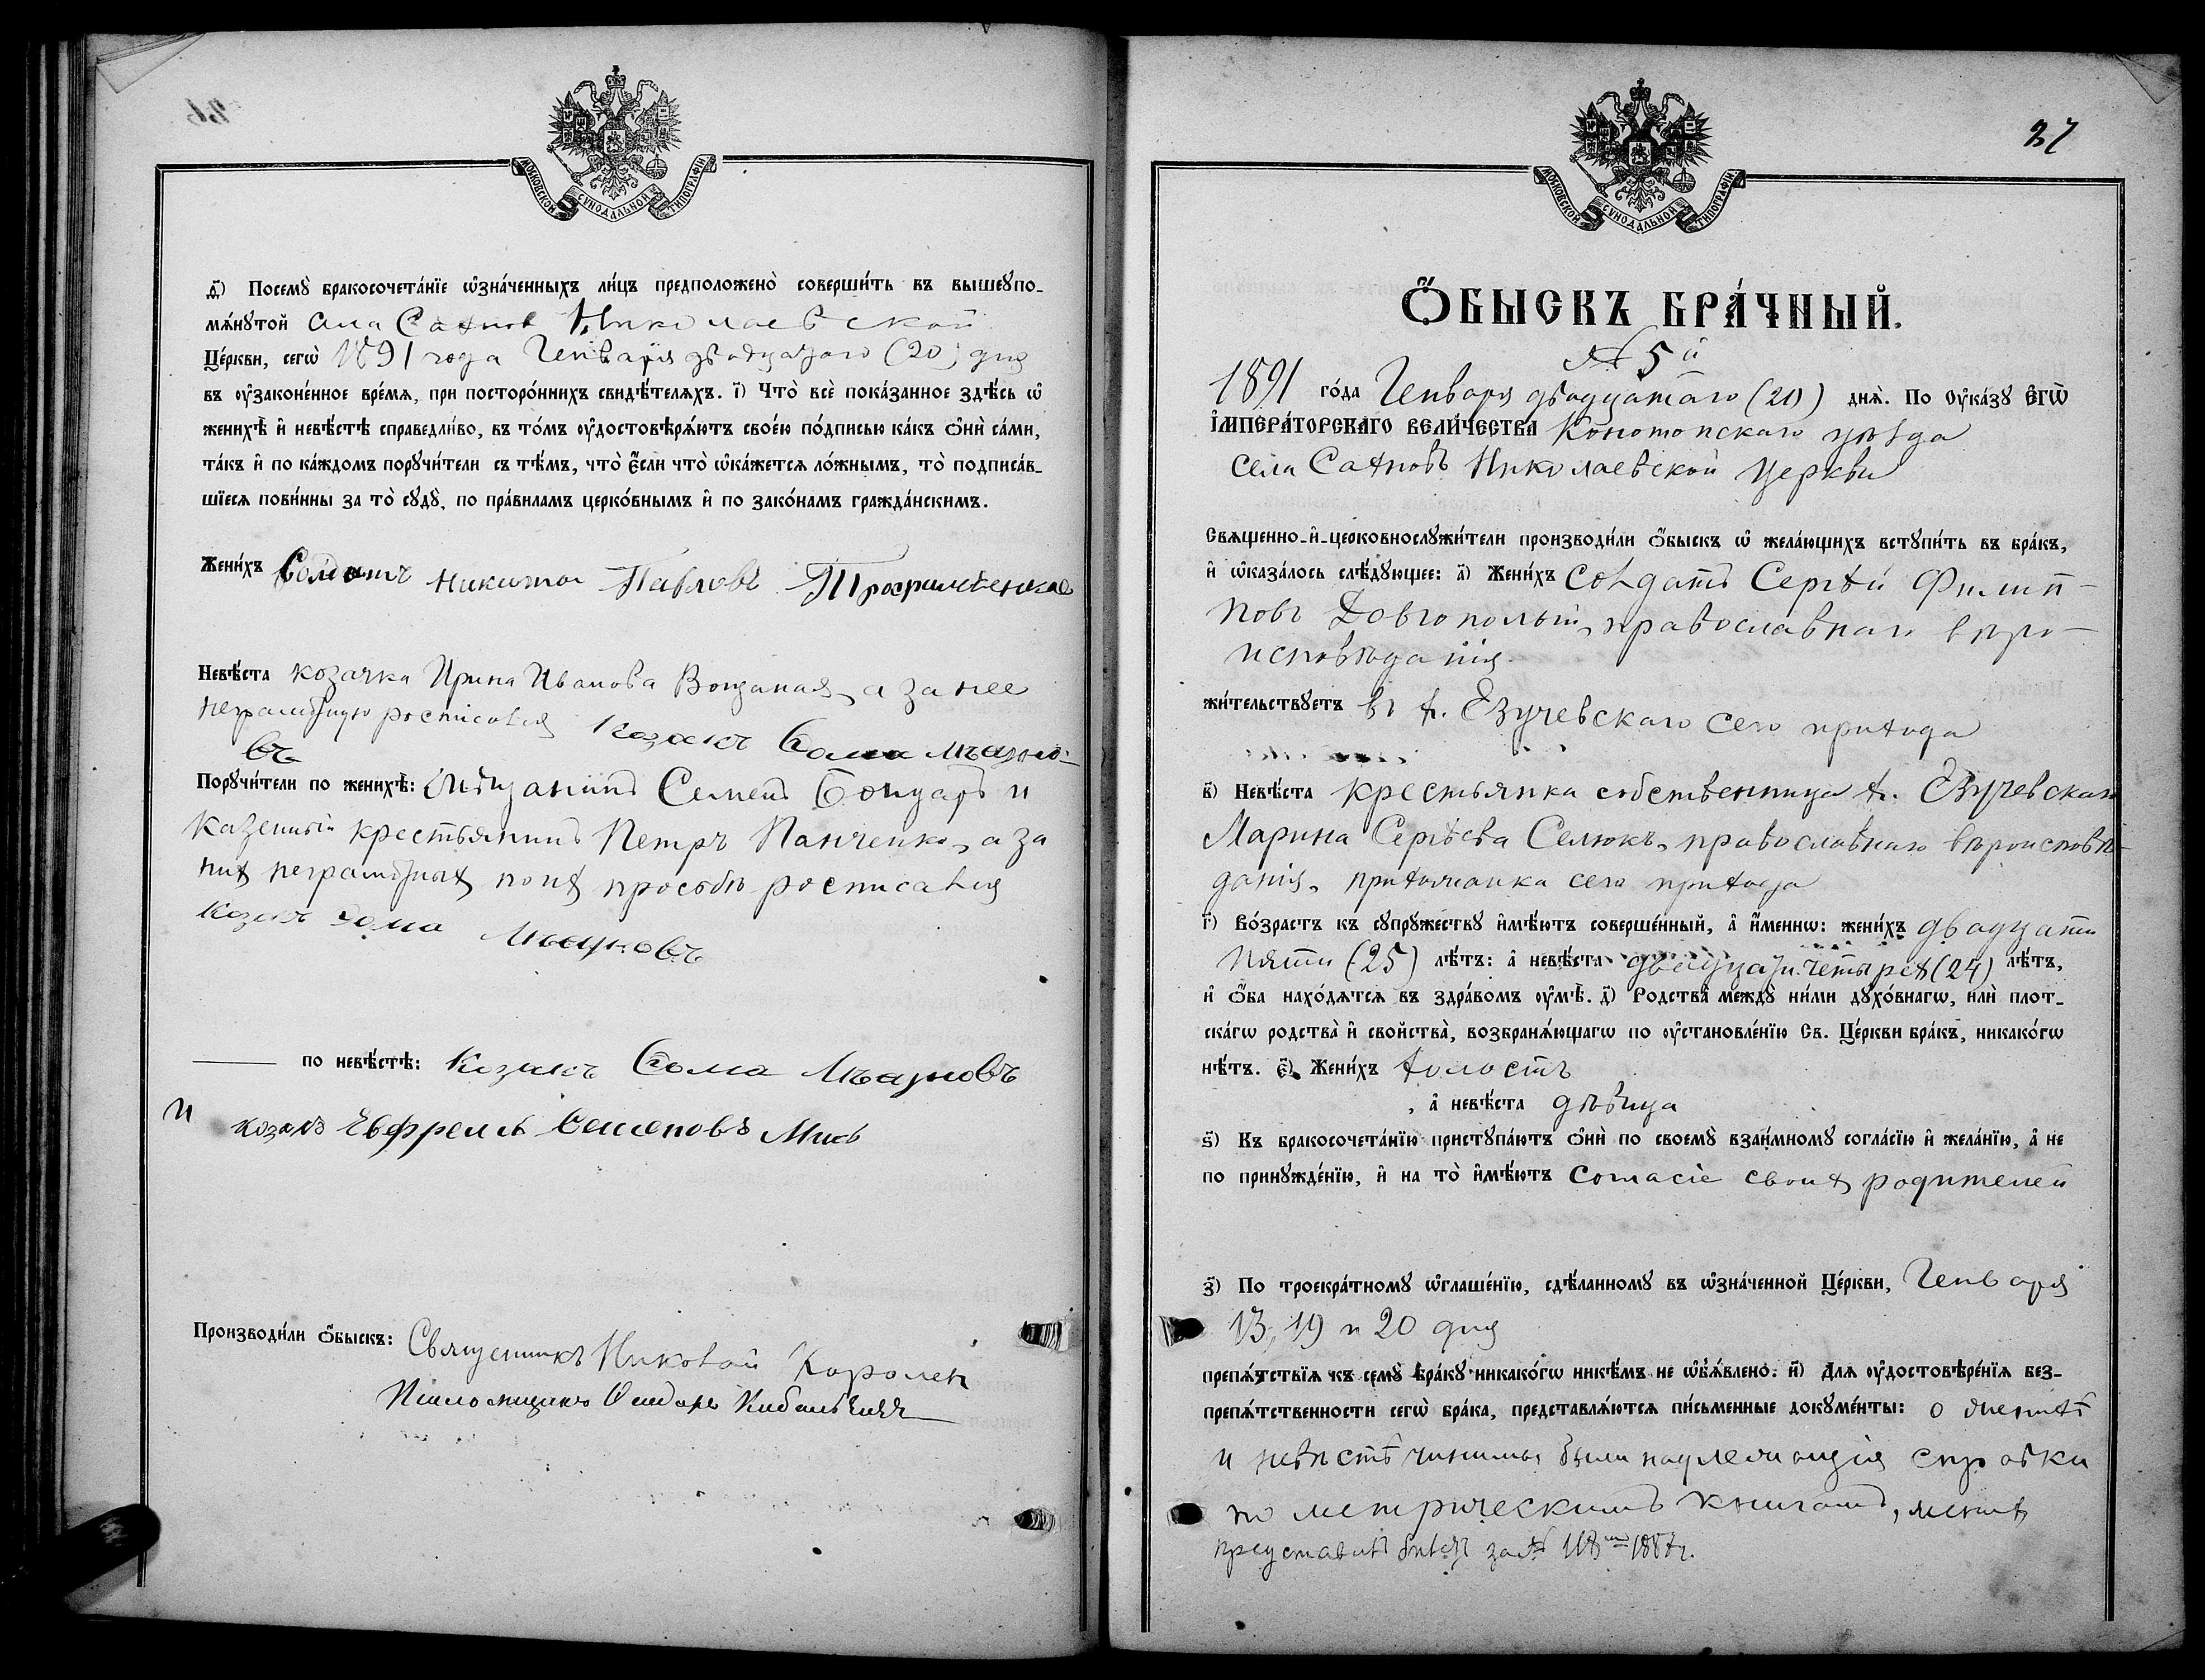 МОСКОВСКОЙ СѴНОДАЛЬНОЙ ТИПОГРАФІИ
д҃) Посемꙋ̀ бракосочета́нїе ѡ҆зна́ченныхъ ли́цъ предположено̀ соверши́ть въ вышеꙋпо-
мѧ́нꙋтой села Сахновъ Николаевской
Це́ркви, сегѡ̀ 1891 года Генваря двадцатаго (20) дня
въ ᲂу҆законе́нное вре́мѧ, при посторо́ннихъ свидѣ́телѧхъ. і҃) Что̀ всѐ пока́занное здѣ́сь ѡ҆
женихѣ̀ и҆ невѣ́стѣ справедли́во, въ то́мъ ᲂу҆достовѣрѧ́ютъ свое́ю по́дписью ка́къ ѻ҆нѝ са́ми,
та́къ и҆ по ка́ждомъ порꙋчи́тели съ тѣ́мъ, что̀ є҆́сли что̀ ѡ҆ка́жетсѧ ло́жнымъ, то̀ подписа́в-
шїесѧ пови́нны за то̀ сꙋдꙋ̀, по пра́виламъ церко́внымъ и҆ по зако́намъ гражда́нскимъ.
Жени́хъ Солдатъ Никита Павловъ
Невѣ́ста козачка Ирина Иванова а за нее
неграмотную росписался Козакъ Сома
въ
Порꙋчи́тели по женихѣ̀: Мѣщанинъ Семенъ Бондарь и
казенный крестьянинъ Петръ Панченко, а за
них неграмотных по их просьбѣ росписался
козакъ Сома
по невѣ́стѣ: Козакъ Сома
и
козакъ Евфремъ Семеновъ
Производи́ли ѻ҆́быскъ: Священникъ Николай
Псаломщикъ
27
МОСКОВСКОЙ СѴНОДАЛЬНОЙ ТИПОГРАФІИ
Ѻ҆́БЫСКЪ БРА́ЧНЫЙ.
№ 5й
1891 го́да Генваря двадцатаго (20) днѧ̀. По ᲂу҆ка́зꙋ Є҆ГѠ̀
І҆МПЕРА́ТОРСКАГО ВЕЛИ́ЧЕСТВА Конотопскаго уѣзда
села Сахновъ Николаевской Церкви
Свѧще́нно-и҆-церковнослꙋжи́тели производи́ли ѻ҆́быскъ ѡ҆ жела́ющихъ встꙋпи́ть въ бра́къ,
и҆ ѡ҆каза́лось слѣ́дꙋющее: а҃) Жени́хъ Солдатъ Сергѣй Филип-
повъ Довгополый, православнаго вѣро-
исповѣданія
жи́тельствꙋетъ въ х. Езучевскаго сего прихода
в҃) Невѣ́ста крестьянка собственница х. Езучевскаго
Марина Сергѣева Селюкъ, православнаго вѣроисповѣ-
данія, прихожанка сего прихода
г҃) Во́зрастъ къ сꙋпрꙋ́жествꙋ и҆мѣ́ютъ соверше́нный, а҆ и҆́меннѡ: жени́хъ двадцати
пяти (25) лѣ́тъ: а҆ невѣ́ста двадцати четырех (24) лѣ́тъ,
и҆ ѻ҆́ба нахо́дѧтсѧ въ здра́вомъ ᲂу҆мѣ̀. д҃) Родства̀ междꙋ̀ ни́ми дꙋхо́внагѡ, и҆лѝ плот-
ска́гѡ родства̀ и҆ свойства̀, возбранѧ́ющагѡ по ᲂу҆становле́нїю Св. Це́ркви бра́къ, никако́гѡ
нѣ́тъ. є҃) Жени́хъ холостъ
, а҆ невѣ́ста дѣвица
ѕ҃) Къ бракосочета́нїю пристꙋпа́ютъ ѻ҆нѝ по своемꙋ̀ взаи́мномꙋ согла́сїю и҆ жела́нїю, а҆ не
по принꙋжде́нїю, и҆ на то̀ и҆мѣ́ютъ согласіе своих родителей
з҃) По троекра́тномꙋ ѡ҆глаше́нїю, сдѣ́ланномꙋ въ ѡ҆зна́ченной Це́ркви, Генваря
13, 19 и 20 дня
препѧ́тствїѧ къ семꙋ̀ бра́кꙋ никако́гѡ никѣ́мъ не ѡ҆б̾ѧ́влено. и҃) Для ᲂу҆достовѣре́нїѧ без-
препѧ́тственности сегѡ̀ бра́ка, представлѧ́ютсѧ пи́сьменные докꙋме́нты: о женихѣ
и невѣстѣ чинимы были надлежащія справки
по метрическимъ книгамъ, жених
представилъ билетъ за №